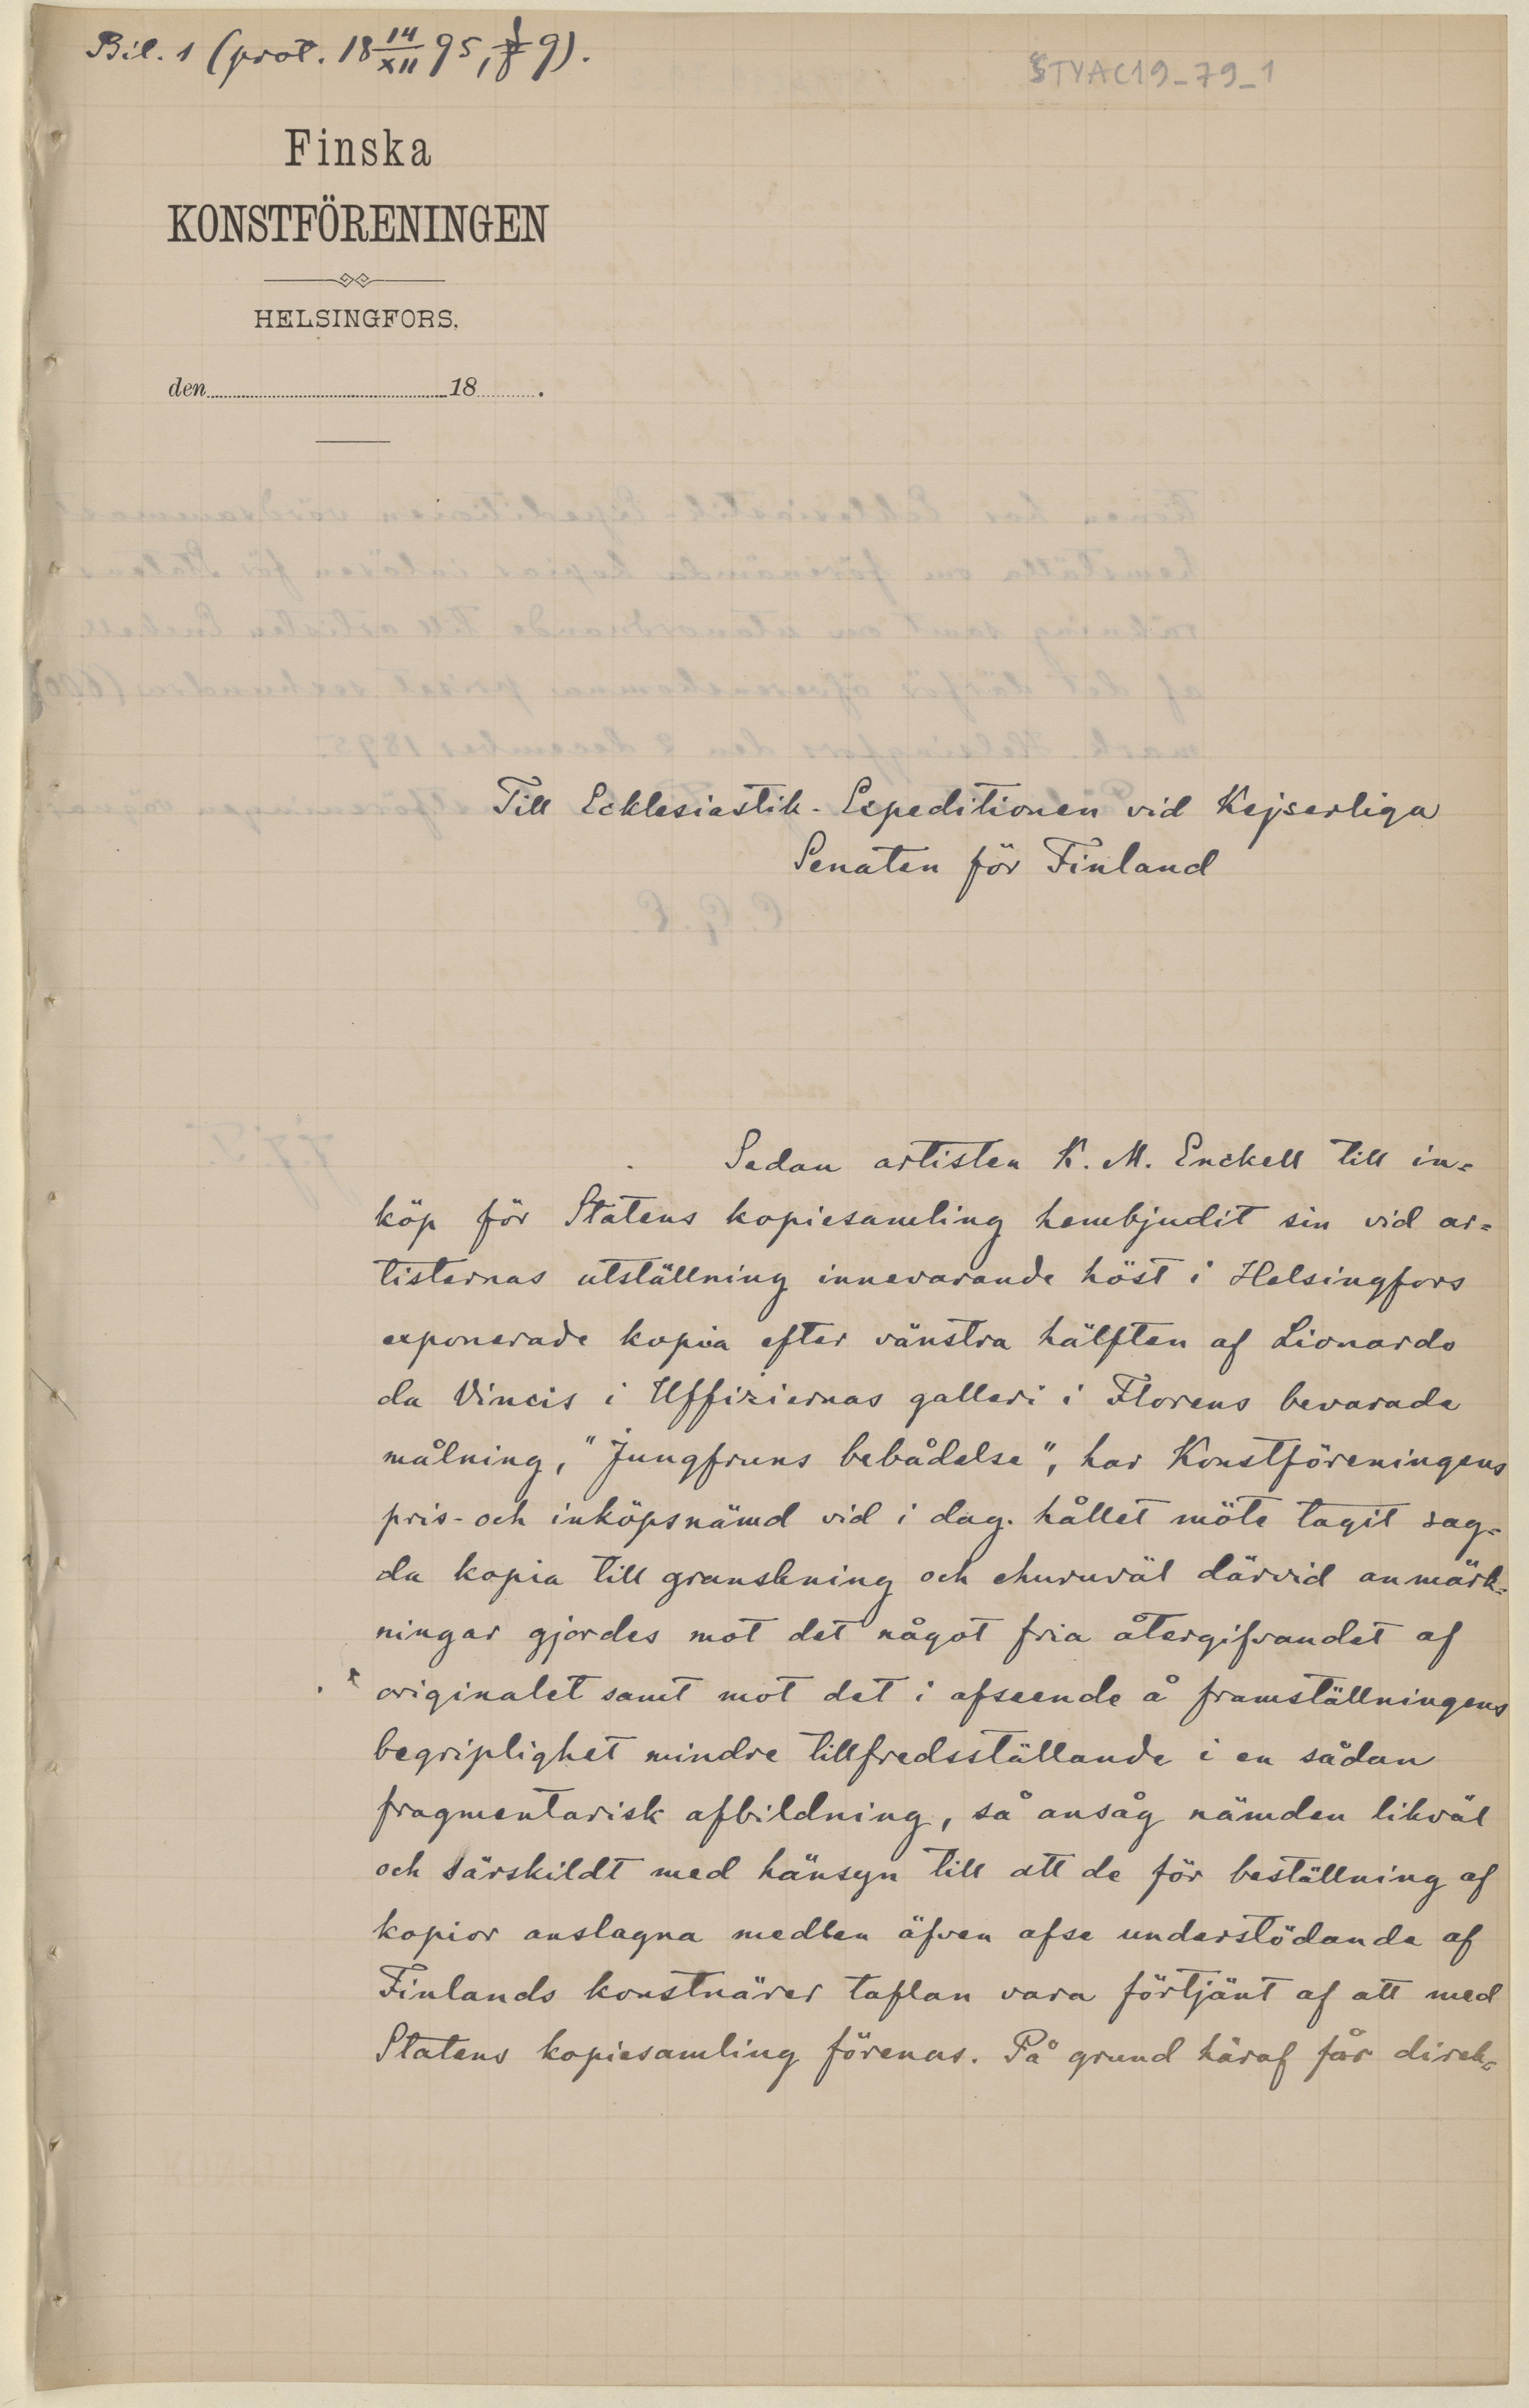 Bil. 1 (prot. 18 14/XII 95, § 9).
STYAC19_79_1
Finska
KONSTFÖRENINGEN
HELSINGFORS.
den 18 .
Till Ecklesiastik-Expeditionen vid Kejserliga
Senaten för Finland
Sedan artisten K. M. Enckell till in=
köp för Statens kopiesamling hembjudit sin vid ar=
tisternas utställning innevarande höst i Helsingfors
exponerade kopia efter vänstra hälften af Lionardo
da Vincis i Uffiziernas galleri i Florens bevarade
målning, "Jungfruns bebådelse", har Konstföreningens
pris- och inköpsnämd vid i dag hållet möte tagit sag=
da kopia till granskning och ehuruväl därvid anmärk=
ningar gjordes mot det något fria återgifvandet af
originalet samt mot det i afseende å framställningens
begriplighet mindre tillfredsställande i en sådan
fragmentarisk afbildning, så ansåg nämden likväl
och särskildt med hänsyn till att de för beställning af
kopior anslagna medlen äfven afse understödande af
Finlands konstnärer taflan vara förtjänt af att med
Statens kopiesamling förenas. På grund häraf får direk=